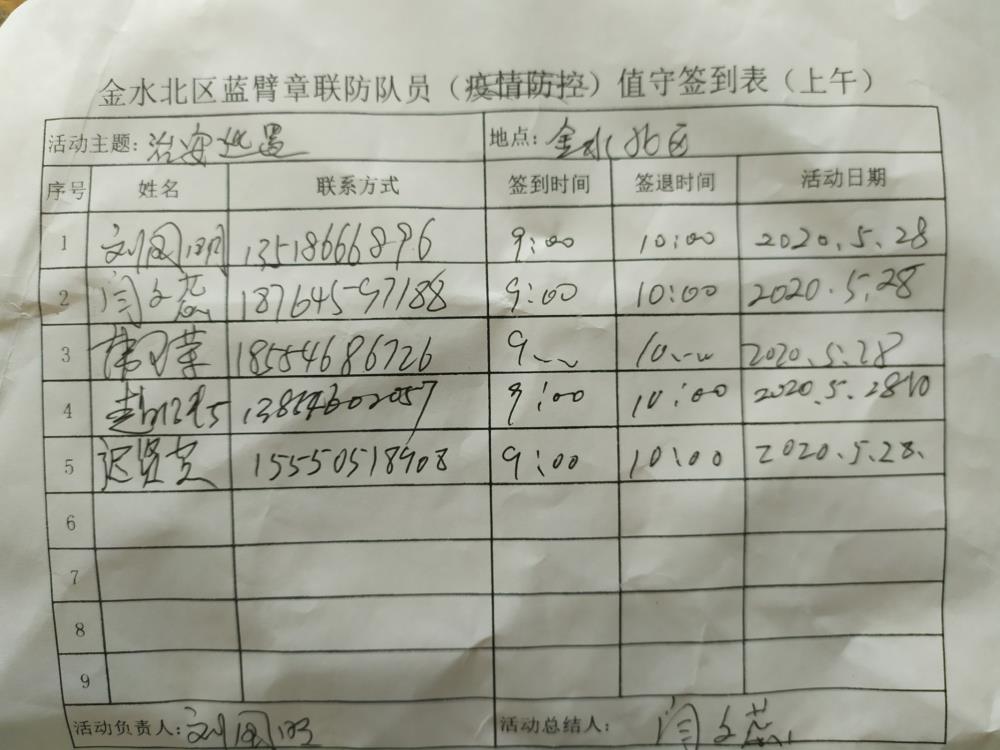 金水北区蓝臂章联防队员（疫情防控）值守签到表（上午）
活动主题：治安巡逻 地点：金水北区
序号 姓名 联系方式 签到时间 签退时间 活动日期
1 刘国明 13518666896 9:00 10:00 2020.5.28
2 闫文 18764597188 9:00 10:00 2020.5.28
3 18554686726 9 10 2020.5.28
4 赵 13854602057 9:00 10:00 2020.5.28
5 迟贤 15550518908 9:00 10:00 2020.5.28.
6
7
8
9
活动负责人：刘国明 活动总结人：闫文